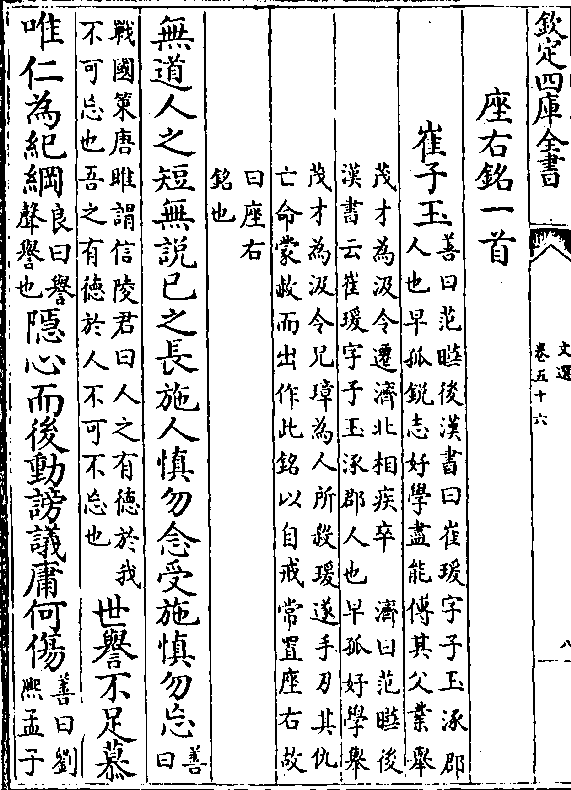 欽定四庫全書
文選
卷五十六
八
座右銘一首
崔子玉
善曰范曄後漢書曰崔瑗字子玉涿郡
人也早孤銳志好學盡能傳其父業舉
茂才為汲令遷濟北相疾卒 濟曰范曄後
漢書云崔瑗字子玉涿郡人也早孤好學舉
茂才為汲令兄璋為人所殺瑗遂手刃其仇
亡命蒙赦而出作此銘以自戒常置座右故
曰座右
銘也
無道人之短無說已之長施人慎勿念受施慎勿忘
善
曰
戰國策唐雎謂信陵君曰人之有德於我
不可忘也吾之有德於人不可不忘也
世譽不足慕
唯仁為紀綱
良曰譽
聲譽也
隱心而後動謗議庸何傷
善曰劉
熙孟子